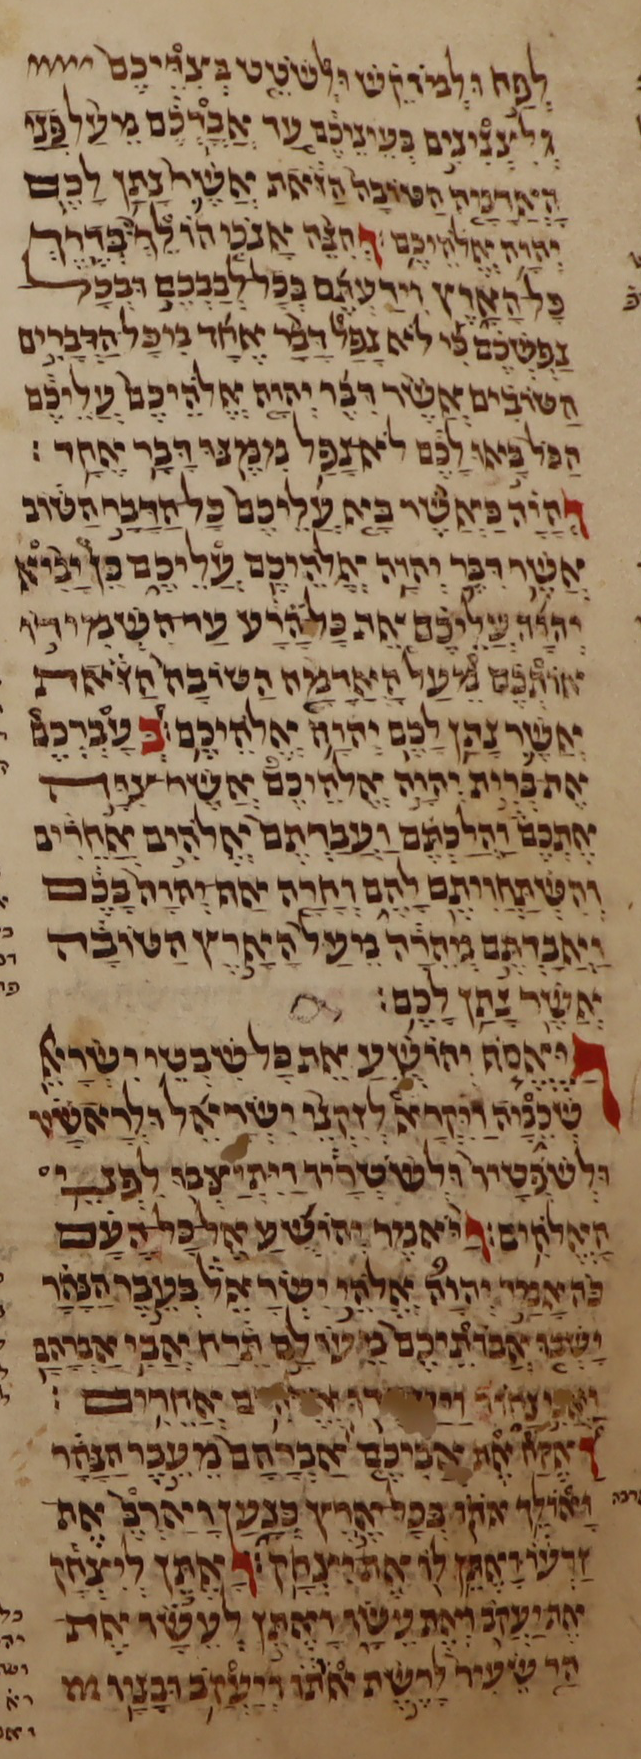 לפח ולמוקש ולשטט בצדיכם
ולצנינים בעיניכם עד אבדכם מעל פני
האדמה הטובה הזאת אשר נתן לכם
יהוה אלהיכם : והנה אנכי הולך בדרך
כל הארץ וידעתם בכל לבבכם ובכל
נפשכם כי לא נפל דבר אחד מכל הדברים
הטובים אשר דבר יהוה אלהיכם עליכם
הכל באו לכם לא נפל ממנו דבר אחד :
והיה כאשר בא עליכם כל הדבר הטוב
אשר דבר יהוה אלהיכם עליכם כן יביא
יהוה עליכם את כל הרע עד השמידו
אותכם מעל האדמה הטובה הזאת
אשר נתן לכם יהוה אלהיכם : בעברכם
את ברית יהוה אלהיכם אשר צוה
אתכם והלכתם ועבדתם אלהים אחרים
והשתחויתם להם וחרה אף יהוה בכם
ואבדתם מהרה מעל הארץ הטובה
אשר נתן לכם :
ויאסף יהושע את כל שבטי ישרא
שכמה ויקרא לזקני ישראל ולראשיו
ולשפטיו ולשטריו ויתיצבו לפני
האלהים : ויאמר יהושע אל כל העם
כה אמר יהוה אלהי ישראל בעבר הנהר
ישבו אבותיכם מעולם תרח אבי אברהם
ואבי נחור אחרים :
ואקח את אביכם אברהם מעבר הנהר
ואולך אתו בכל ארץ כנען וארבה את
זרעו ואתן לו את יצחק : ואתן ליצחק
את יעקב ואת עשו ואתן לעשו את
הר שעיר לרשת אותו ויעקב ובניו